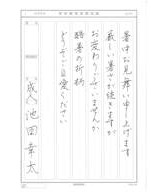 暑中お見舞い申し上げます
厳しい暑さが続きますが
お変わりございませんか
酷暑の折柄
どうぞご自愛ください
成人
池田幸太